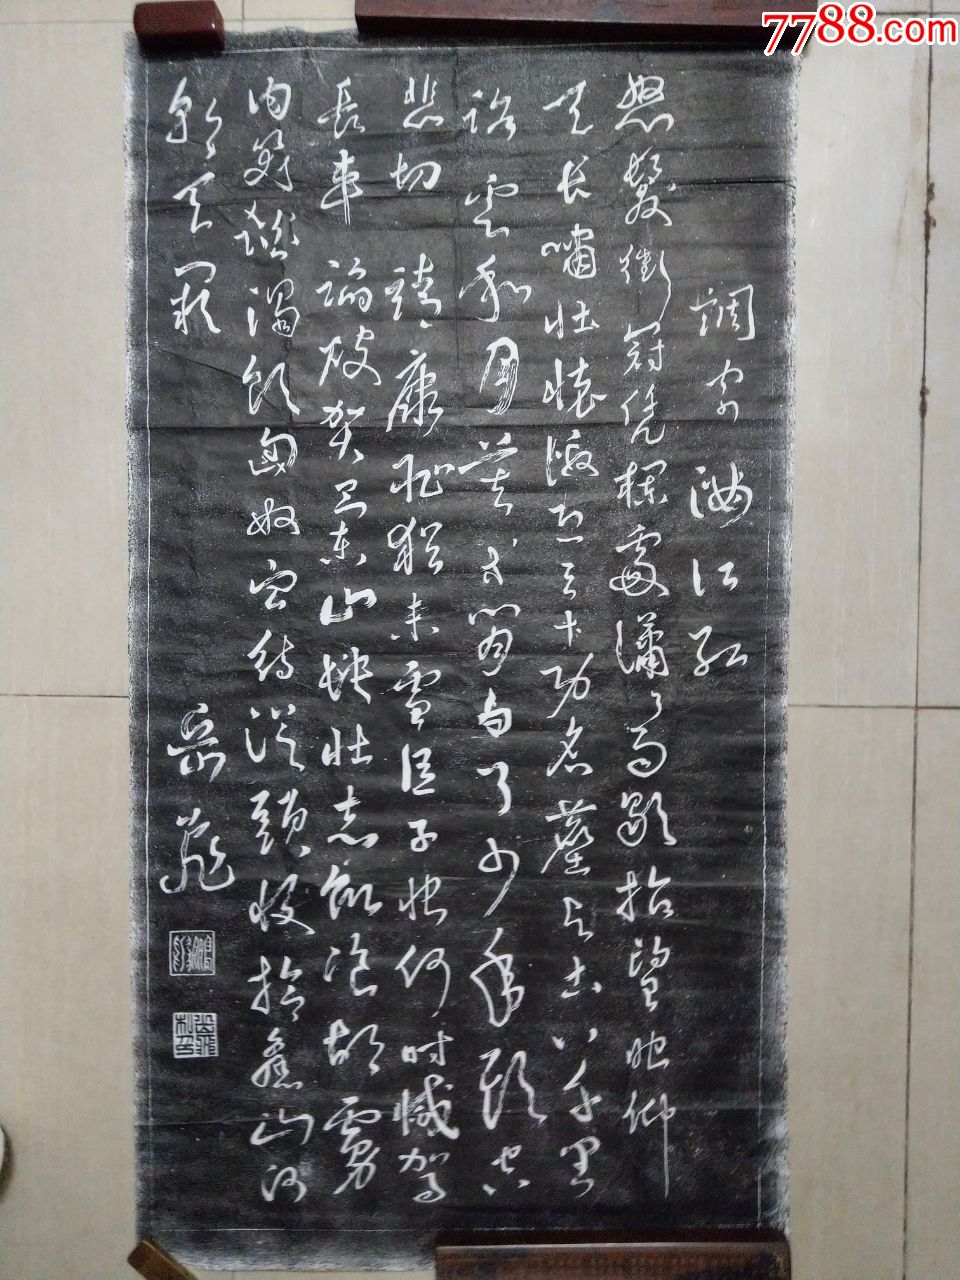 7788.com
調寄 滿江紅
怒髮衝冠憑欄處瀟瀟雨歇抬望眼仰
天長嘯壯懷激烈三十功名塵與土八千里
路雲和月莫等閒白了少年頭空
悲切 靖康恥猶未雪臣子恨何時滅駕
長車 踏破賀蘭山缺壯志飢餐胡虜
肉笑談渴飲匈奴血待從頭收拾舊山河
朝天闕
岳飛